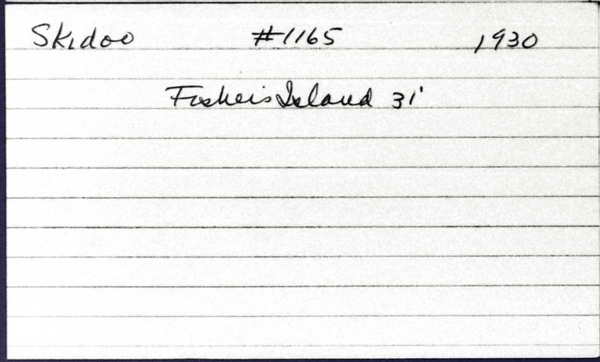 Skidoo #1165 1930
Fishers Island 31'